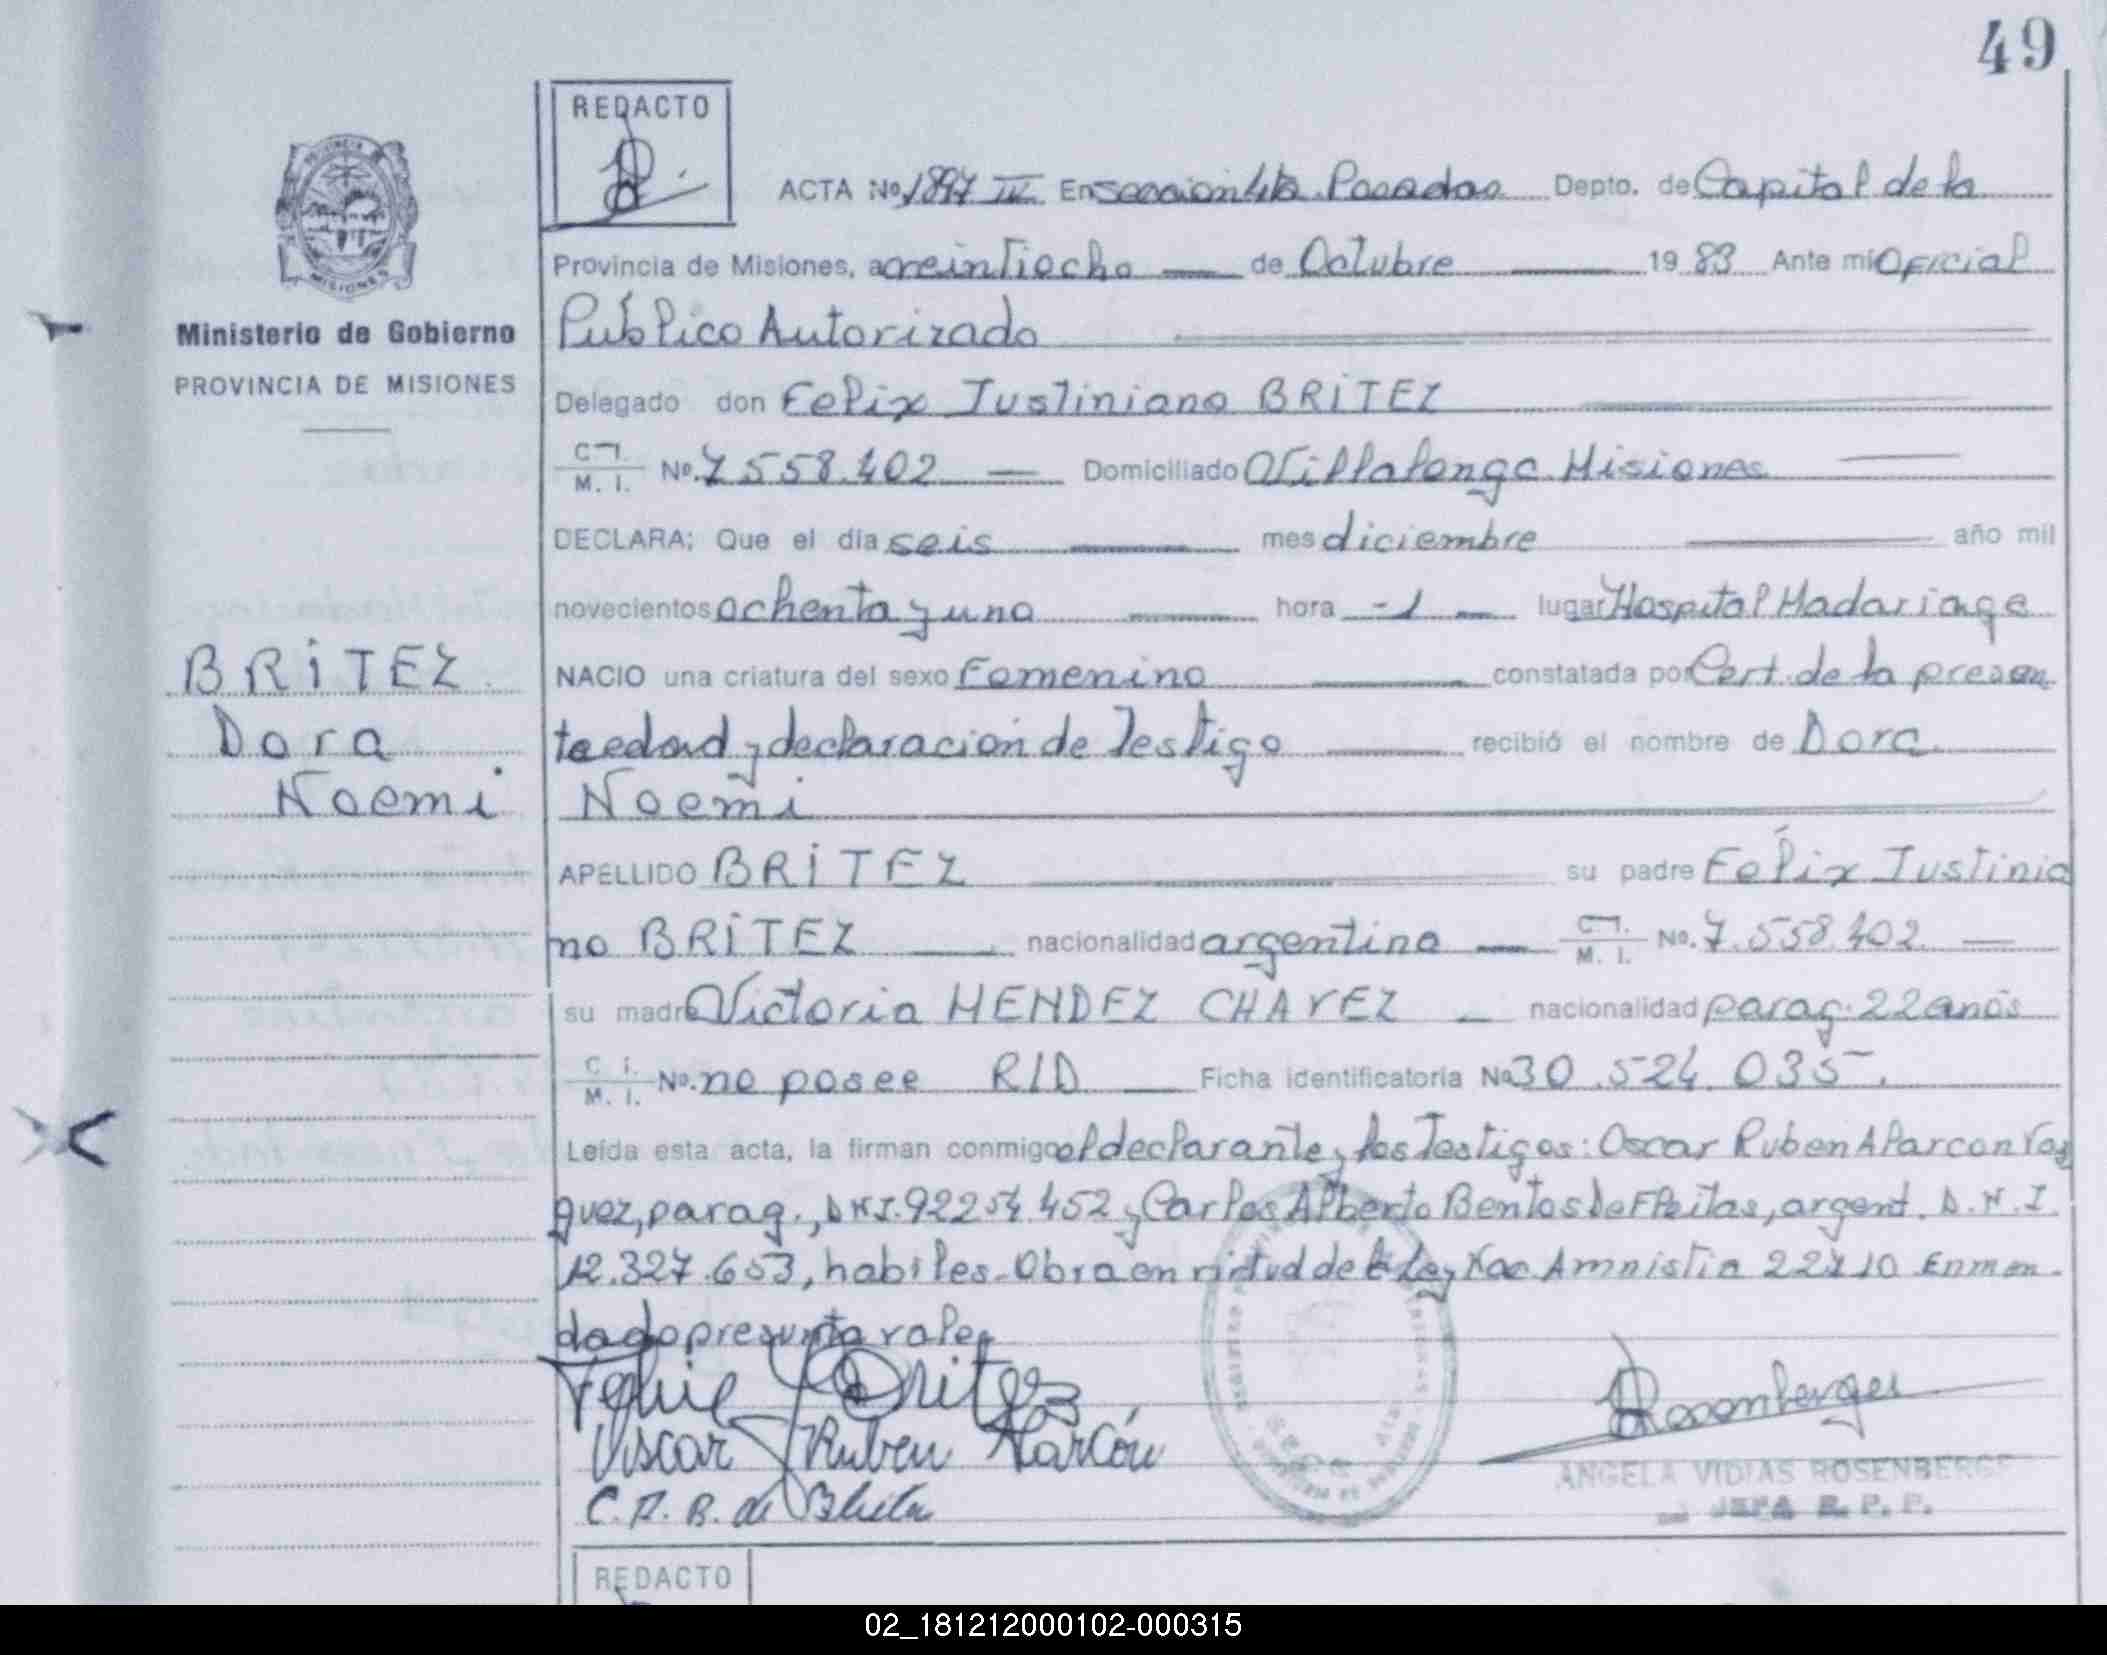 49
REDACTO
ACTA No. 1897 IV En seccion 4ta. Posadas Depto. de Capital de la
Provincia de Misiones, a veintiocho de Octubre 1983 Ante mi Oficial
Público Autorizado
Ministerio de Gobierno
PROVINCIA DE MISIONES
Delegado don Felix Justiniano BRITEZ
C. I.
M. I. No. 7.558.402 Domiciliado Villalonga Misiones
DECLARA; Que el día seis mes diciembre año mil
novecientos ochenta y uno hora -1- lugar Hospital Madariaga
BRITEZ
NACIO una criatura del sexo Femenino constatada por Cert. de la presun
Dora
ta edad y declaracion de Testigo recibió el nombre de Dora
Noemi
Noemi
APELLIDO BRITEZ su padre Felix Justinia
no BRITEZ nacionalidad argentino C. I. M. I. No. 7.558.402
su madre Victoria MENDEZ CHAVEZ nacionalidad parag. 22 años
C. I.
M. I. No. no posee RID Ficha identificatoria No 30.524.035.
Leída esta acta, la firman conmigo el declarante y los Testigos: Oscar Ruben Alarcon Vas
quez, parag., DNI. 92254.452 y Carlos Alberto Bentos De Freitas, argent. D.N.I.
12.327.653, habiles. Obra en virtud de la Ley Nac Amnistia 22710 Enmen
dado presunta vale
Britez
Oscar Ruben Alarcón
C. A. B. de
Rosenberger
ANGELA VIDIAS ROSENBERGE
JEFA R. P. P.
REDACTO
02_181212000102-000315